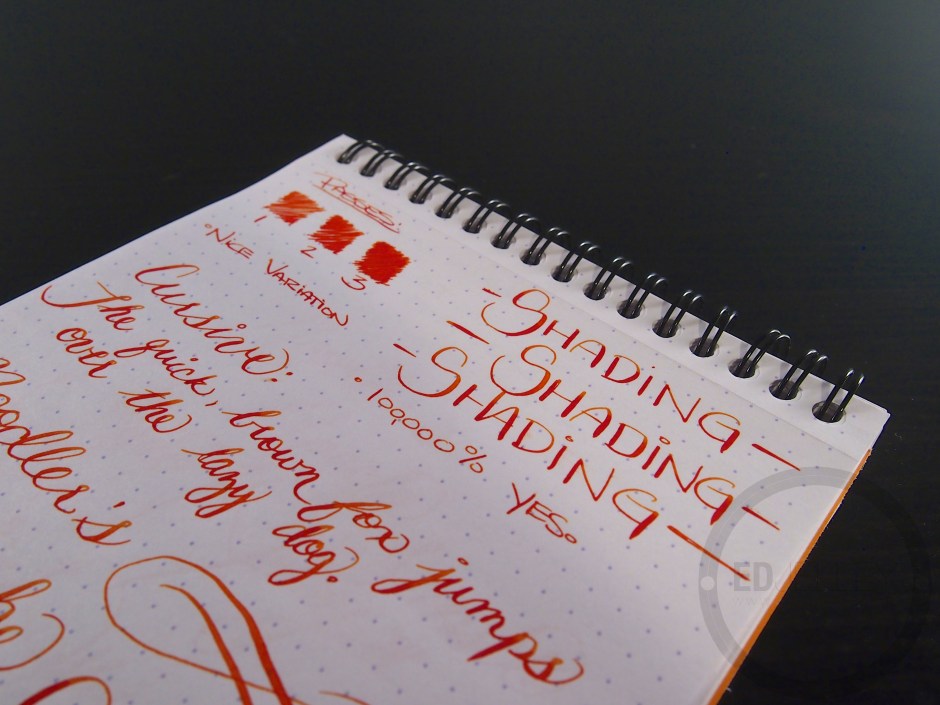 PASSES:
1 2 3
•NICE VARIATION
-SHADING-
-SHADING-
-SHADING-
• 10,000% YES.
Cursive:
The quick, brown fox jumps
over the lazy dog.
Noodler's
ED